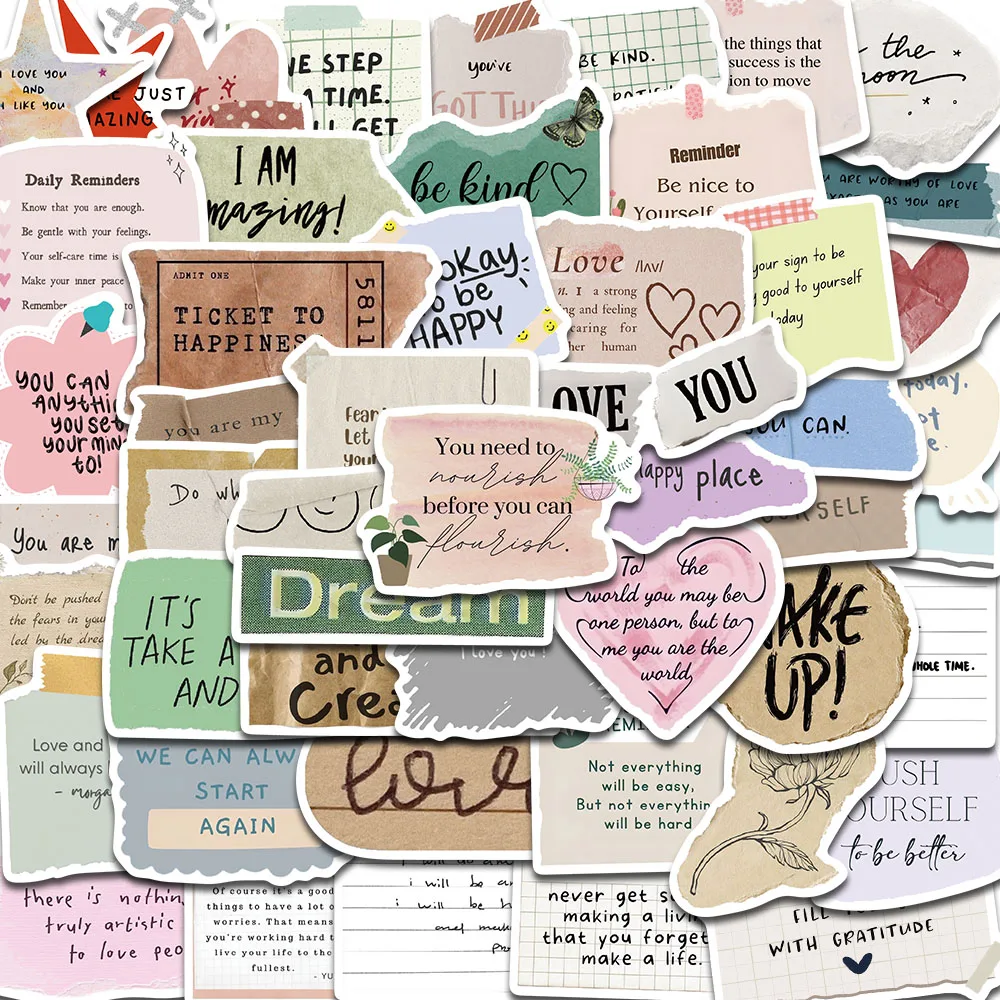 I LOVE YOU
AND
I LIKE YOU
JUST
AZING
E STEP
A TIME.
GET
you've
GOT TH
BE KIND.
the things that
success is the
ion to move
the
moon
Daily Reminders
Know that you are enough.
Be gentle with your feelings.
Your self-care time is
Make your inner peace
Remember
to
I AM
mazing!
be kind
Reminder
Be nice to
Yourself
ARE WORTHY OF LOVE
AS YOU ARE
ADMIT ONE
TICKET TO
HAPPINES
5811
OKAY
o be
HAPPY
Love /lʌv/
n. 1 a strong
ing and feeling
caring for
her human
your sign to be
y good to yourself
today
YOU CAN
ANYTHI
YOU SET
YOUR MIN
TO!
you are my
fear
Let
you
OVE
YOU
OU CAN.
today,
ot
e.
You need to
nourish
before you can
flourish.
appy place
Do wh
URSELF
You are m
Don't be pushed
the fears in you
led by the drea
IT'S
TAKE A
AND
Dream
and
Crea
I love you!
To the
world you may be
one person, but to
me you are the
world
AKE
UP!
WHOLE TIME.
Love and
will always
- morga
WE CAN ALW
START
AGAIN
love
EMI
Not everything
will be easy,
But not everythin
will be hard
USH
OURSELF
to be better
there is nothin
truly artistic
to love peo
Of course it's a good
things to have a lot o
worries. That means
you're working hard t
live your life to the
fullest.
- YU
i will do
i will be a
i will be h
and mak
pr
never get s
making a livi
that you forget
make a life.
FILL
WITH GRATITUDE